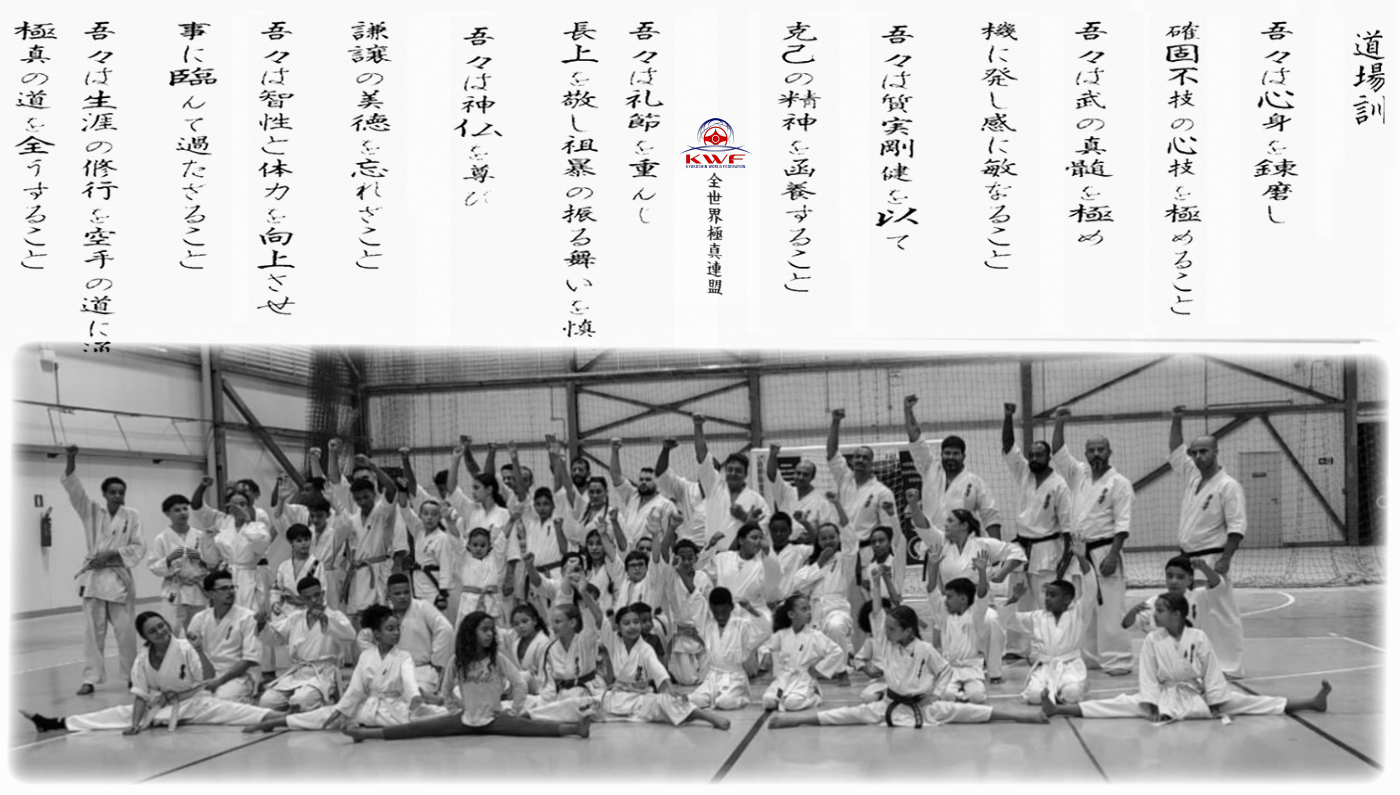 道場訓
吾々は心身を錬磨し
確固不技の心技を極めること
吾々は武の真髄を極め
機に発し感に敏なること
吾々は質実剛健を以て
克己の精神を函養すること
KWF
KYOKUSHIN WORLD FEDERATION
全世界極真連盟
吾々は礼節を重んじ
長上を敬し祖暴の振る舞いを慎
吾々は神仏を尊び
謙譲の美徳を忘れざこと
吾々は智性と体力を向上させ
事に臨んて過たざること
吾々は生涯の修行を空手の道に通
極真の道を全うすること